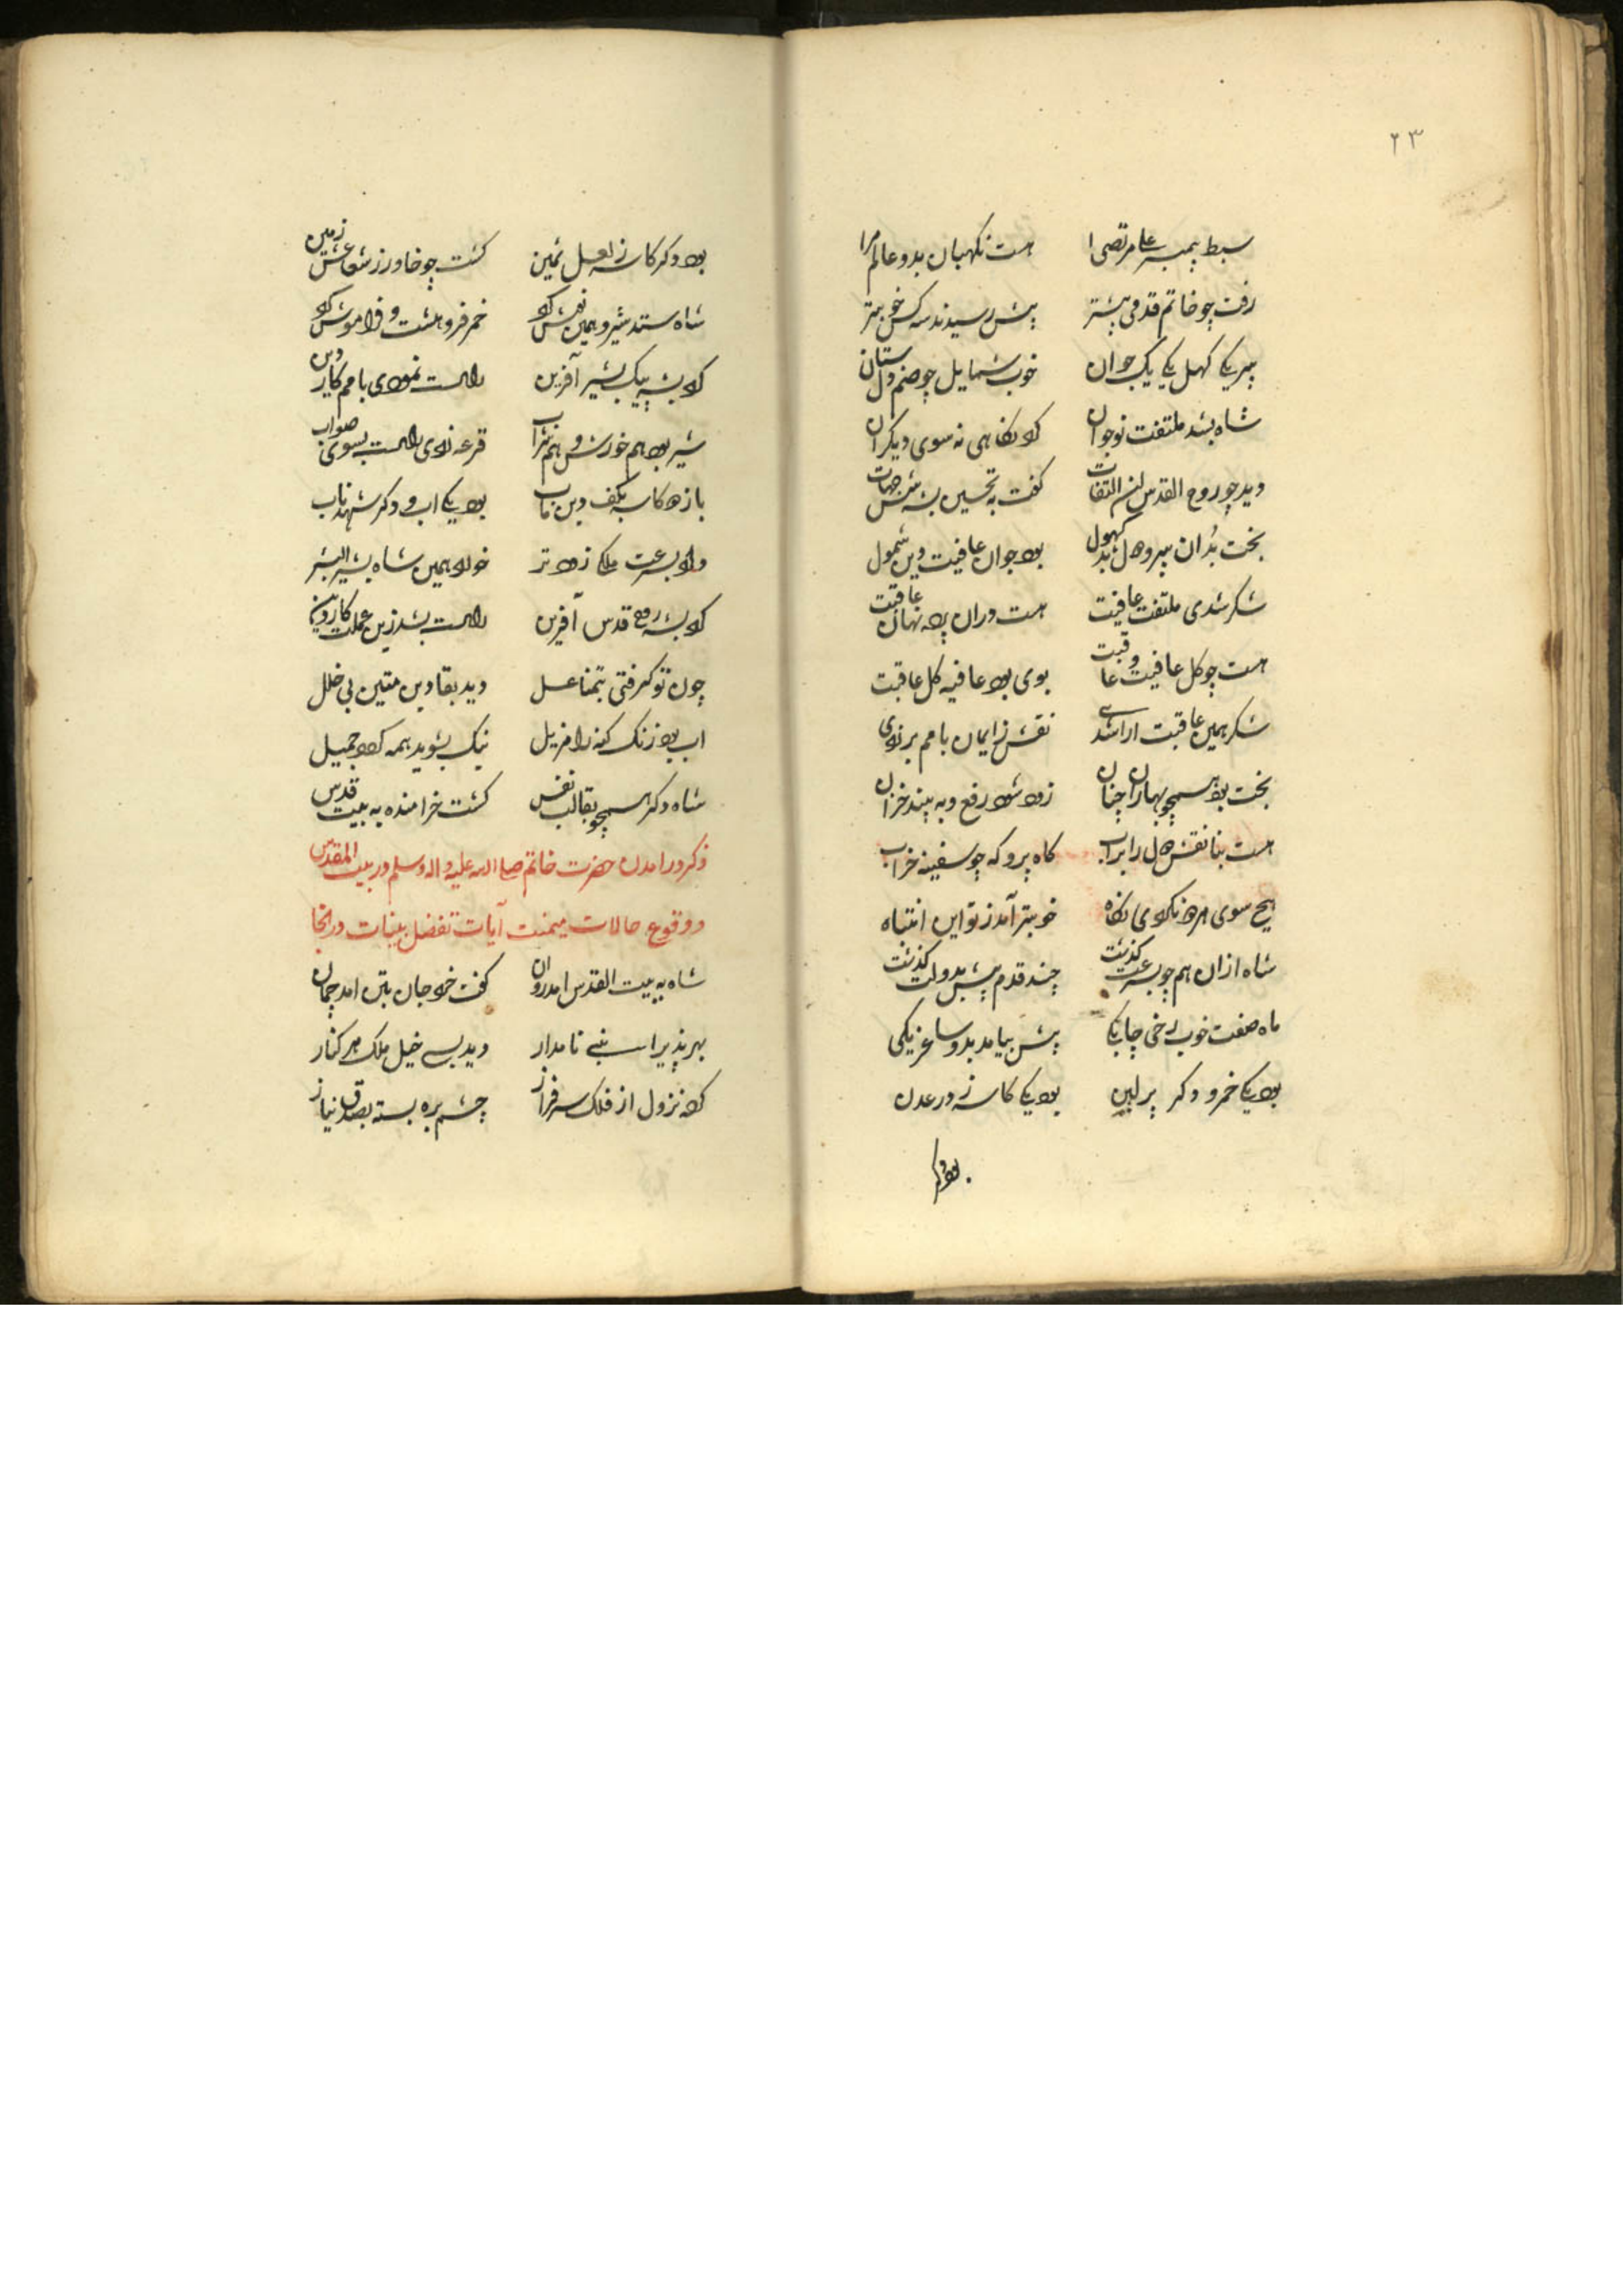 ۲۳
سبط پیمبر علی مرتضی ا هست نکهبان بدو عالم مرا
رفت چو خاتم قدمی پیشتر پیش رسیدند سه کس خوبتر
پیر یکی کهل یکی یک جوان خوب شمایل چو صنم دلستان
شاه بشد ملتفت نوجوان کرد نکاهی نه سوی دیکران
دید چو روح القدس این التفات کفت به تحسین بشه شش جهات
بخت بدان پیر و دول بد کهول بود جوان عافیت دین شمول
شکر شدی ملتفت عافیت هست دران پرده نهان عاقبت
هست چو کل عافیت و عاقبت بوی بود عافیه کل عاقبت
شکر همین عاقبت اراشدی نقش ز ایمان بامم بر زدی
بخت بود همچو بهاران چنان زود شود رفع و به بیند خزان
هست بنا نقش دول را براب کاه پرو که چو سفینه خراب
هیچ سوی هر دو نکردی نکاه خوبتر آمد ز تو این انتباه
شاه ازان هم چو بسرعت کذشت چند قدم پیش بدولت کذشت
ماه صفت خوب رخی چابکی پیش بیامد بدو ساغر یکی
بود یکی خمر و دکر پر لبن بود یکی کاسه ز در عدن
بود دکر
بود دکر کاسه ز لعل ثمین کشت چو خاور ز شعاعش زمین
شاه ستد شیر و همین نوش کرد خمر فرو هشت و فراموش کرد
کرد بشه پیک بشیر آفرین راست نمودی بامم کار دین
شیر بود هم خورش و هم شراب قرعه زدی راست بسوی صواب
باز دو کاسه بکف دین ماب بود یکی اب و دکر شهد ناب
داد بسرعت ملکی زود تر خورد همین شاه بشیر البشر
کرد بشه روح قدس آفرین راست بشد زین عملت کار دین
چون تو کرفتی بتمنا عسل دید بقا دین متین بی خلل
اب بود زنک کنه را مزیل نیک بشوید همه کرد جمیل
شاه دکر همچو بقالب نفس کشت خرامنده به بیت قدس
ذکر در امدن حضرت خاتم صلی الله علیه و اله وسلم در بیت المقدس
و وقوع حالات میمنت آیات تفضل بینات در انجا
شاه به بیت القدس امد روان کفت خرد جان بتن امد چمان
بهر پذیرا سنبی نامدار دید بسی خیل ملک هر کنار
کرده نزول از فلک سرفراز چشم بره بسته بصدق نیاز